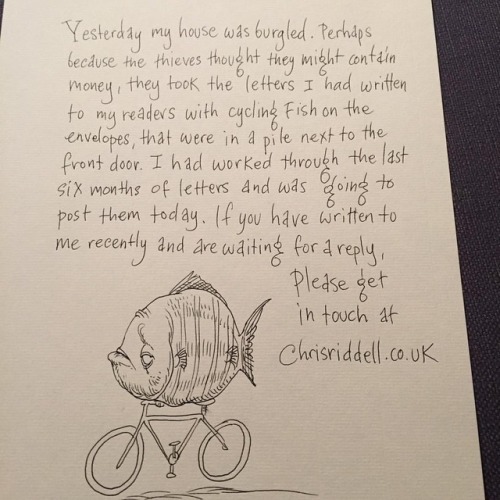 Yesterday my house was burgled. Perhaps
because the thieves thought they might contain
money, they took the letters I had written
to my readers with cycling Fish on the
envelopes, that were in a pile next to the
front door. I had worked through the last
six months of letters and was going to
post them today. If you have written to
me recently and are waiting for a reply,
Please get
in touch at
Chrisriddell.co.uk